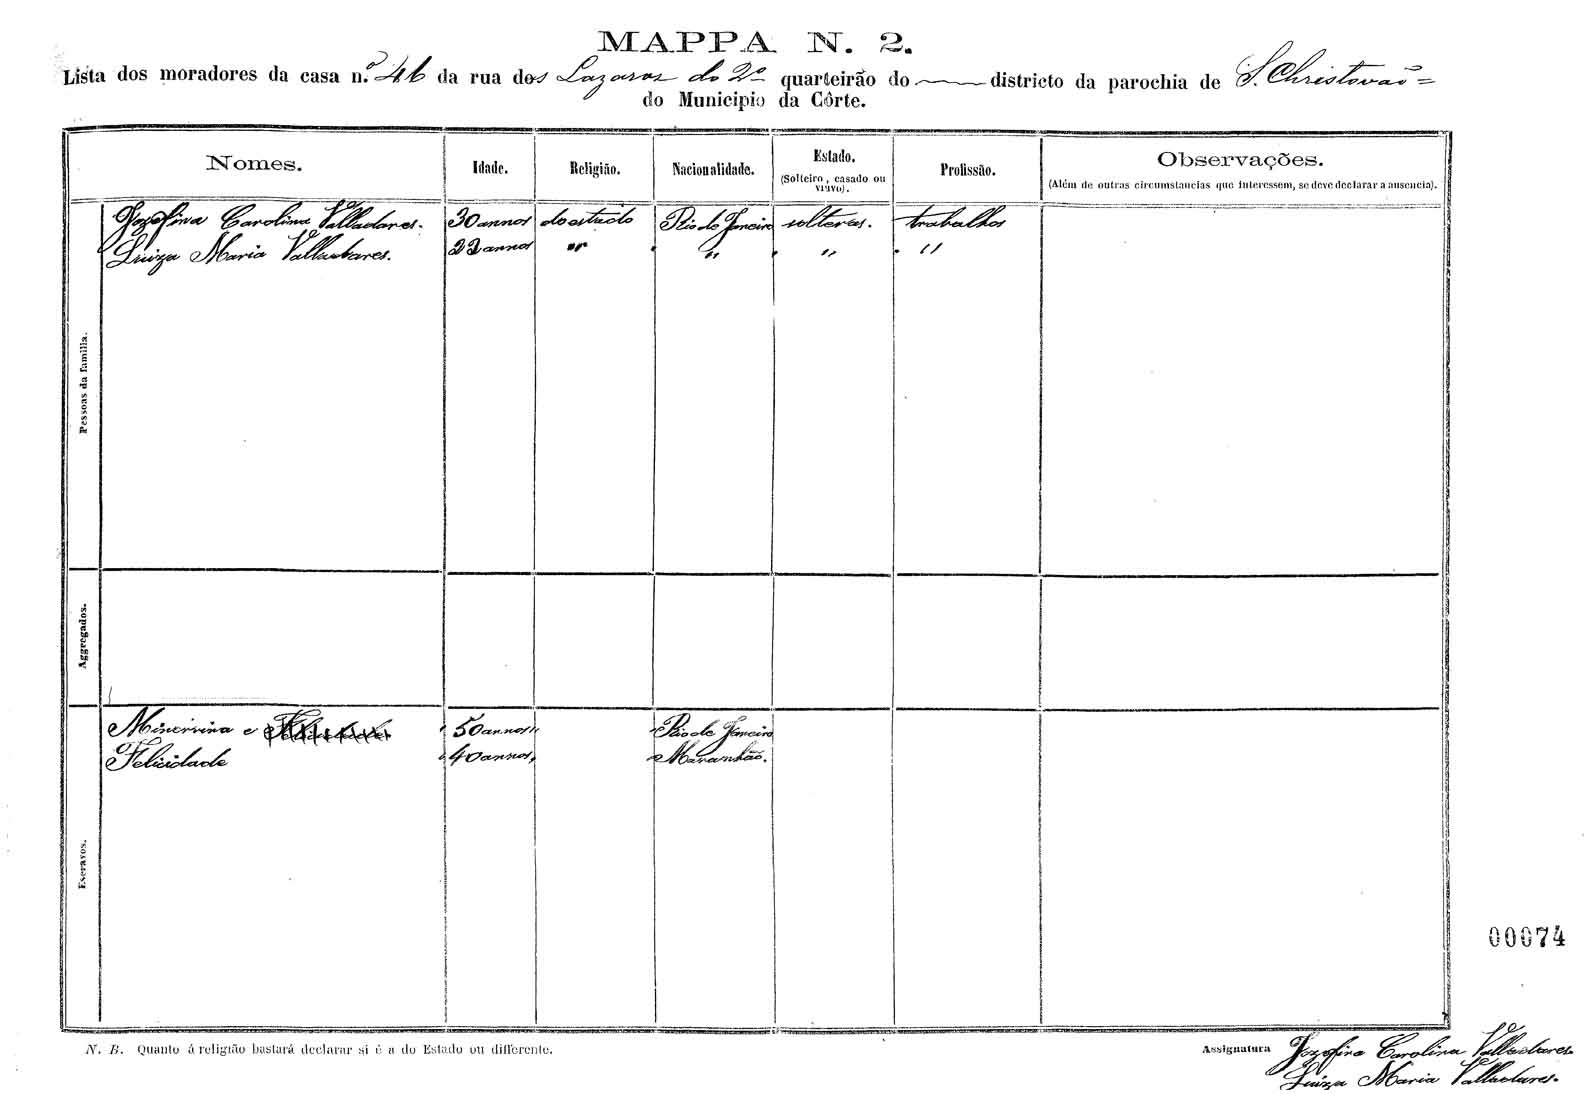 MAPPA N. 2.
Lista dos moradores da casa n.º 46 da rua dos Lazaros do 2º quarteirão do districto da parochia de S. Christovão
do Municipio da Côrte.
Nomes. Idade. Religião. Nacionalidade. Estado. (Solteiro, casado ou viuvo). Profissão. Observações. (Além de outras circumstancias que interessem, se deve declarar a ausencia).
Pessoas da familia.
Jozefina Carolina Valladares. 30 annos do estado Rio de Janeiro solteras. trabalhos
Luiza Maria Valladares. 22 annos " " " "
Aggregados.
Escravos.
Minervina e 50 annos Rio de Janeiro
Felicidade 40 annos, Maranhão.
00074
N. B. Quanto á religião bastará declarar si é a do Estado ou differente.
Assignatura Jozefina Carolina Valladares.
Luiza Maria Valladares.